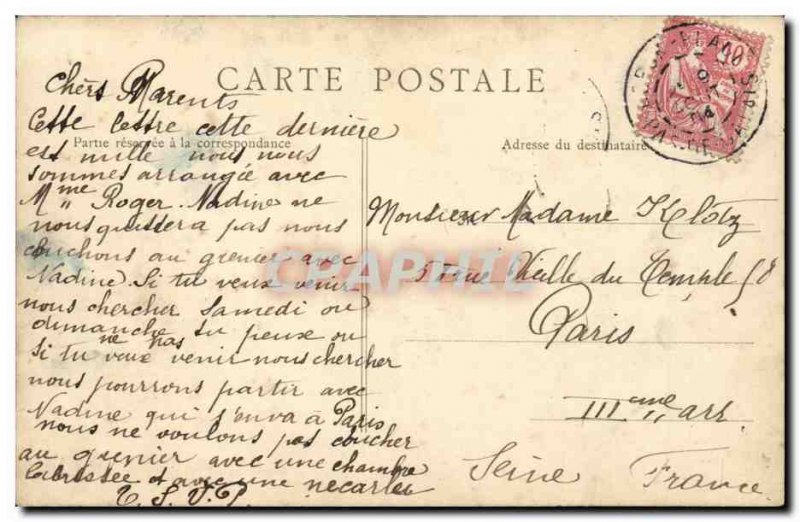 CARTE POSTALE
Partie réservée à la correspondance
Adresse du destinataire
10
chèrs Parents
Cette lettre cette dernière
est nulle nous nous
sommes arrangée avec
Mme " Roger. Nadine ne
nous quittera pas nous
couchons au grenier avec
Nadine. Si tu veux venir
nous chercher Samedi ou
dimanche tu peux ou
si tu ne veux pas venir nous chercher
nous pourrons partir avec
Nadine qui s'en va à Paris
nous ne voulons pas coucher
au grenier avec une chambre
et avec une
T. S. V. P.
Monsieur Madame Klotz
rue Vieille du Temple 58
Paris
IIIeme " arr.
Seine France
CPAPHIL